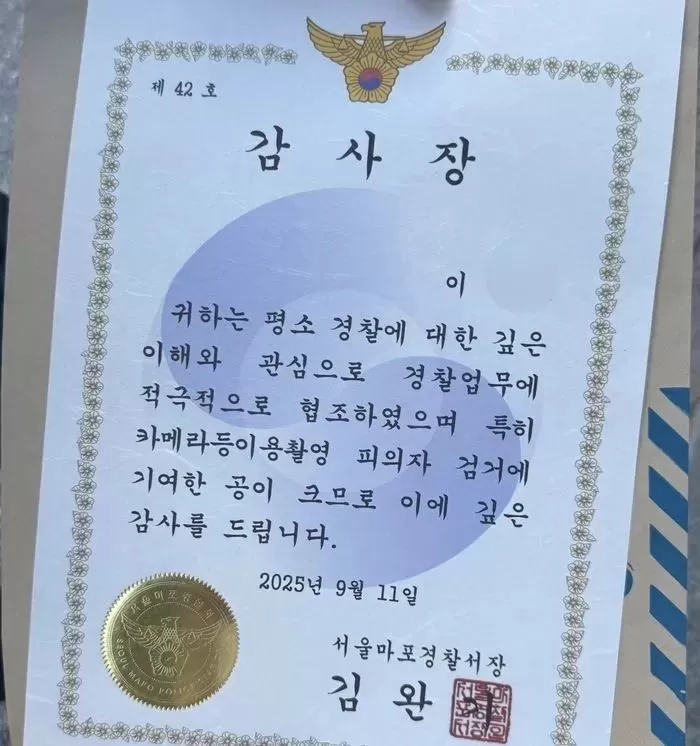 제 42 호
감 사 장
이
귀하는 평소 경찰에 대한 깊은
이해와 관심으로 경찰업무에
적극적으로 협조하였으며 특히
카메라등이용촬영 피의자 검거에
기여한 공이 크므로 이에 깊은
감사를 드립니다.
2025년 9월 11일
서울마포경찰서장
김 완 기
서울마포경찰서
SEOUL MAPO POLICE